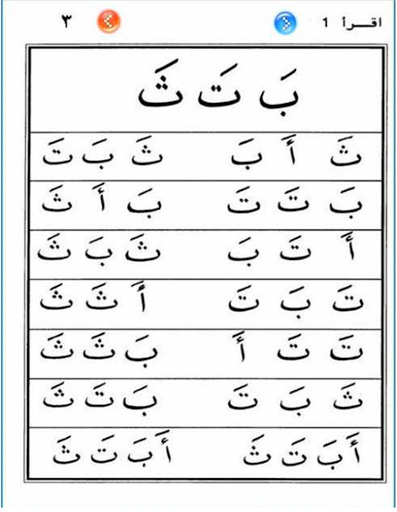 اقـــرأ 1 ٣
بَ تَ ثَ
ثَ أَ بَ ثَ بَ تَ
بَ تَ تَ بَ أَ ثَ
أَ تَ بَ ثَ بَ ثَ
تَ بَ تَ أَ ثَ ثَ
تَ تَ أَ بَ ثَ ثَ
ثَ بَ تَ بَ تَ ثَ
أَ بَ تَ ثَ أَ بَ تَ ثَ